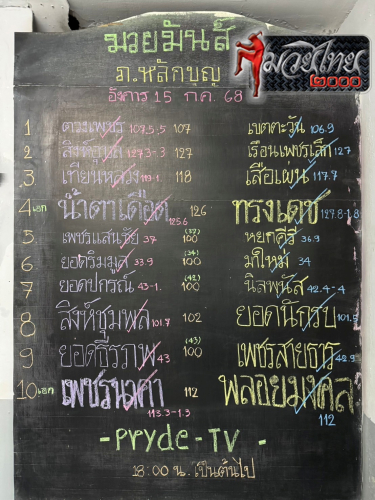 มวยไทย
๒๐๐๐
มวยมันส์
ภ.หลักบุญ
อังคาร 15 กค 68
1 ดวงเพชร 107.5.5 107 เขตตะวัน 106.9
2 127.3-.3 127 เรือนเพชรเล็ก 127
3 เทียนหลวง 118 เสือเผ่น 117.7
4 เอก น้ำตาเดือด 125.6 126 ทรงเดช 127.8-1.8
5 เพชรแสนชัย 37 (37) 100 หยกคีรี 36.9
6 ยอดริมมูล 33.9 (34) 100 มีใหม่ 34
7 ยอดปกรณ์ 43-1. (42) 100 นิลพนัส 42.4-4
8 สิงห์ชุมพล 101.7 102 ยอดนักรบ 101.5
9 ยอดธีรภาพ 43 (43) 100 เพชรสายธาร 42.9
10 เอก เพชรนาคา 113.3-1.3 112 พลอยมงคล 112
- Pryde - TV -
18:00 น. เป็นต้นไป